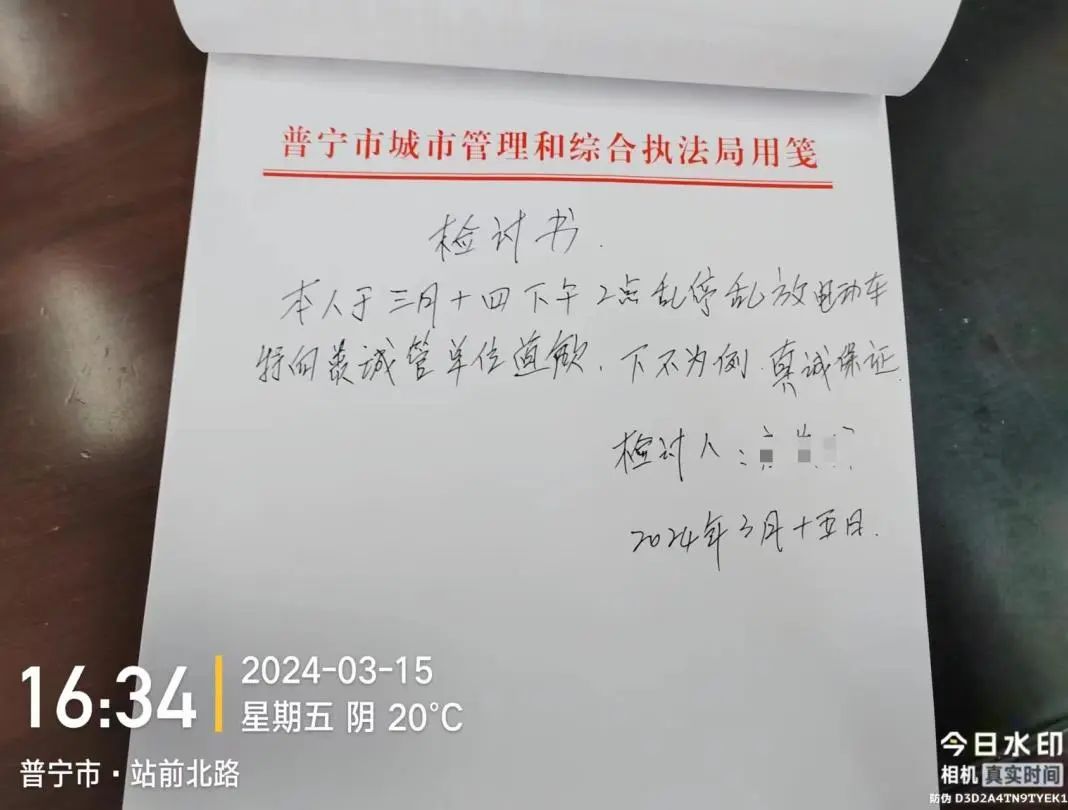 普宁市城市管理和综合执法局用笺
检讨书.
本人于三月十四下午2点乱停乱放电动车
特向城管单位道歉.下不为例.真诚保证.
检讨人:
2024年3月十五日.
16:34
2024-03-15
星期五 阴 20°C
普宁市·站前北路
今日水印
相机 真实时间
防伪 D3D2A4TN9TYEK1